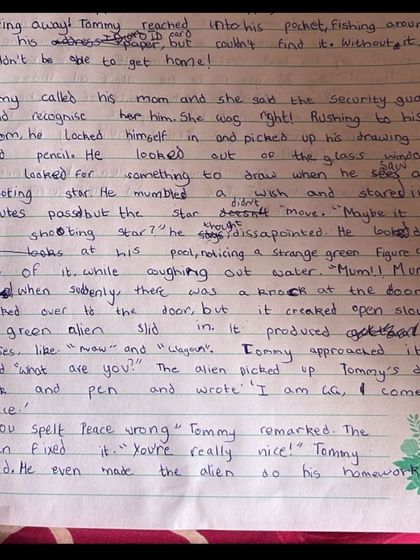 ing away! Tommy reached into his pocket, fishing aroun
his address ID card ID card paper, but couldn't find it. Without it
dn't be able to get home!
my called his mom and she said the security gua
d recognise her him. She was right! Rushing to his
om, he locked himself in and picked up his drawing
d pencil. He looked out of the glass windo
looked for something to draw when he sees saw a
oting star. He mumbled a wish and stared i
utes passd but the star doesn't didn't move. "Maybe it
shooting star?" he says thought, dissapointed. He looked d
looks at his pool, noticing a strange green figure c
of it, while coughing out water. "Mum!! Mu
ed when suddenly, there was a knock at the door
ked over to the door, but it creaked open slow
green alien slid in. It produced
ses, like "now" and "Wagow". Tommy approached it
d "What are you?" The alien picked up Tommy's d
k and pen and wrote 'I am GG, I come
ce.'
ou spelt Peace wrong" Tommy remarked. The
n fixed it. "You're really nice!" Tommy
d. He even made the alien do his homework